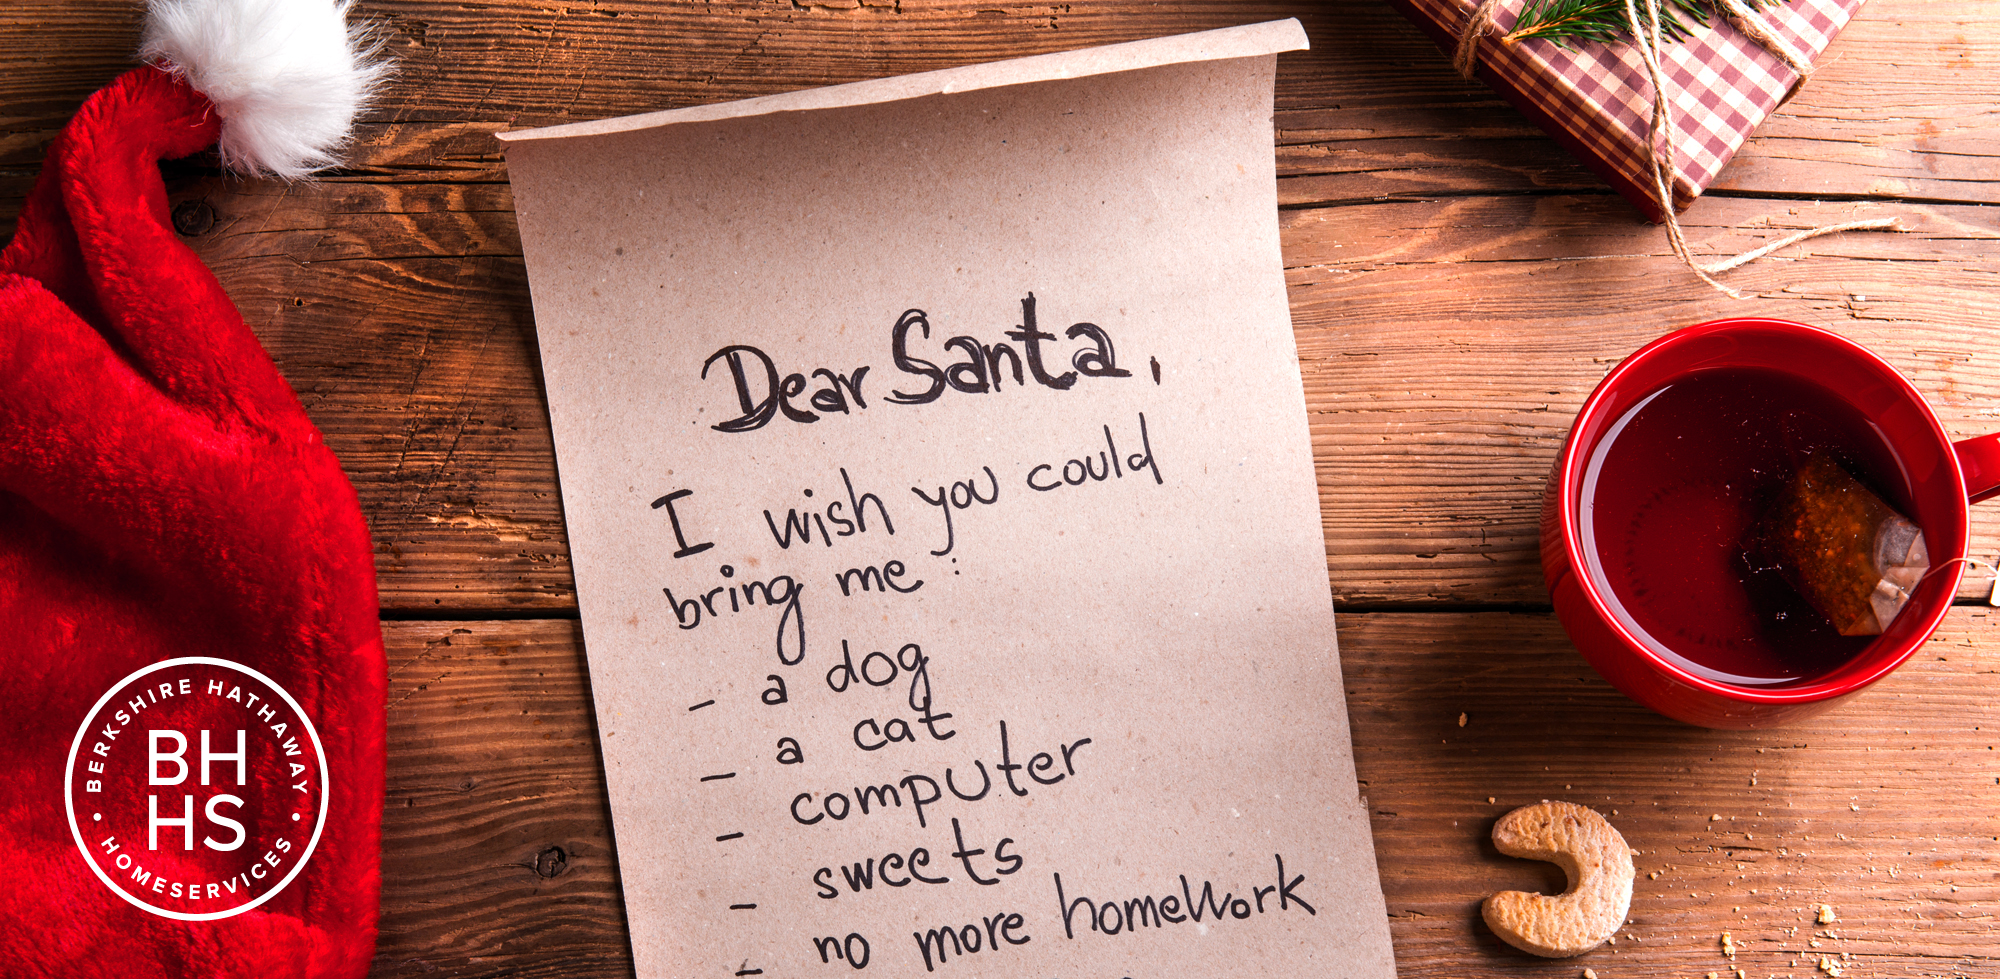 Dear Santa,
I wish you could
bring me:
- a dog
- a cat
- computer
- sweets
- no more homework
-
BERKSHIRE HATHAWAY
BH
HS
• HOMESERVICES •